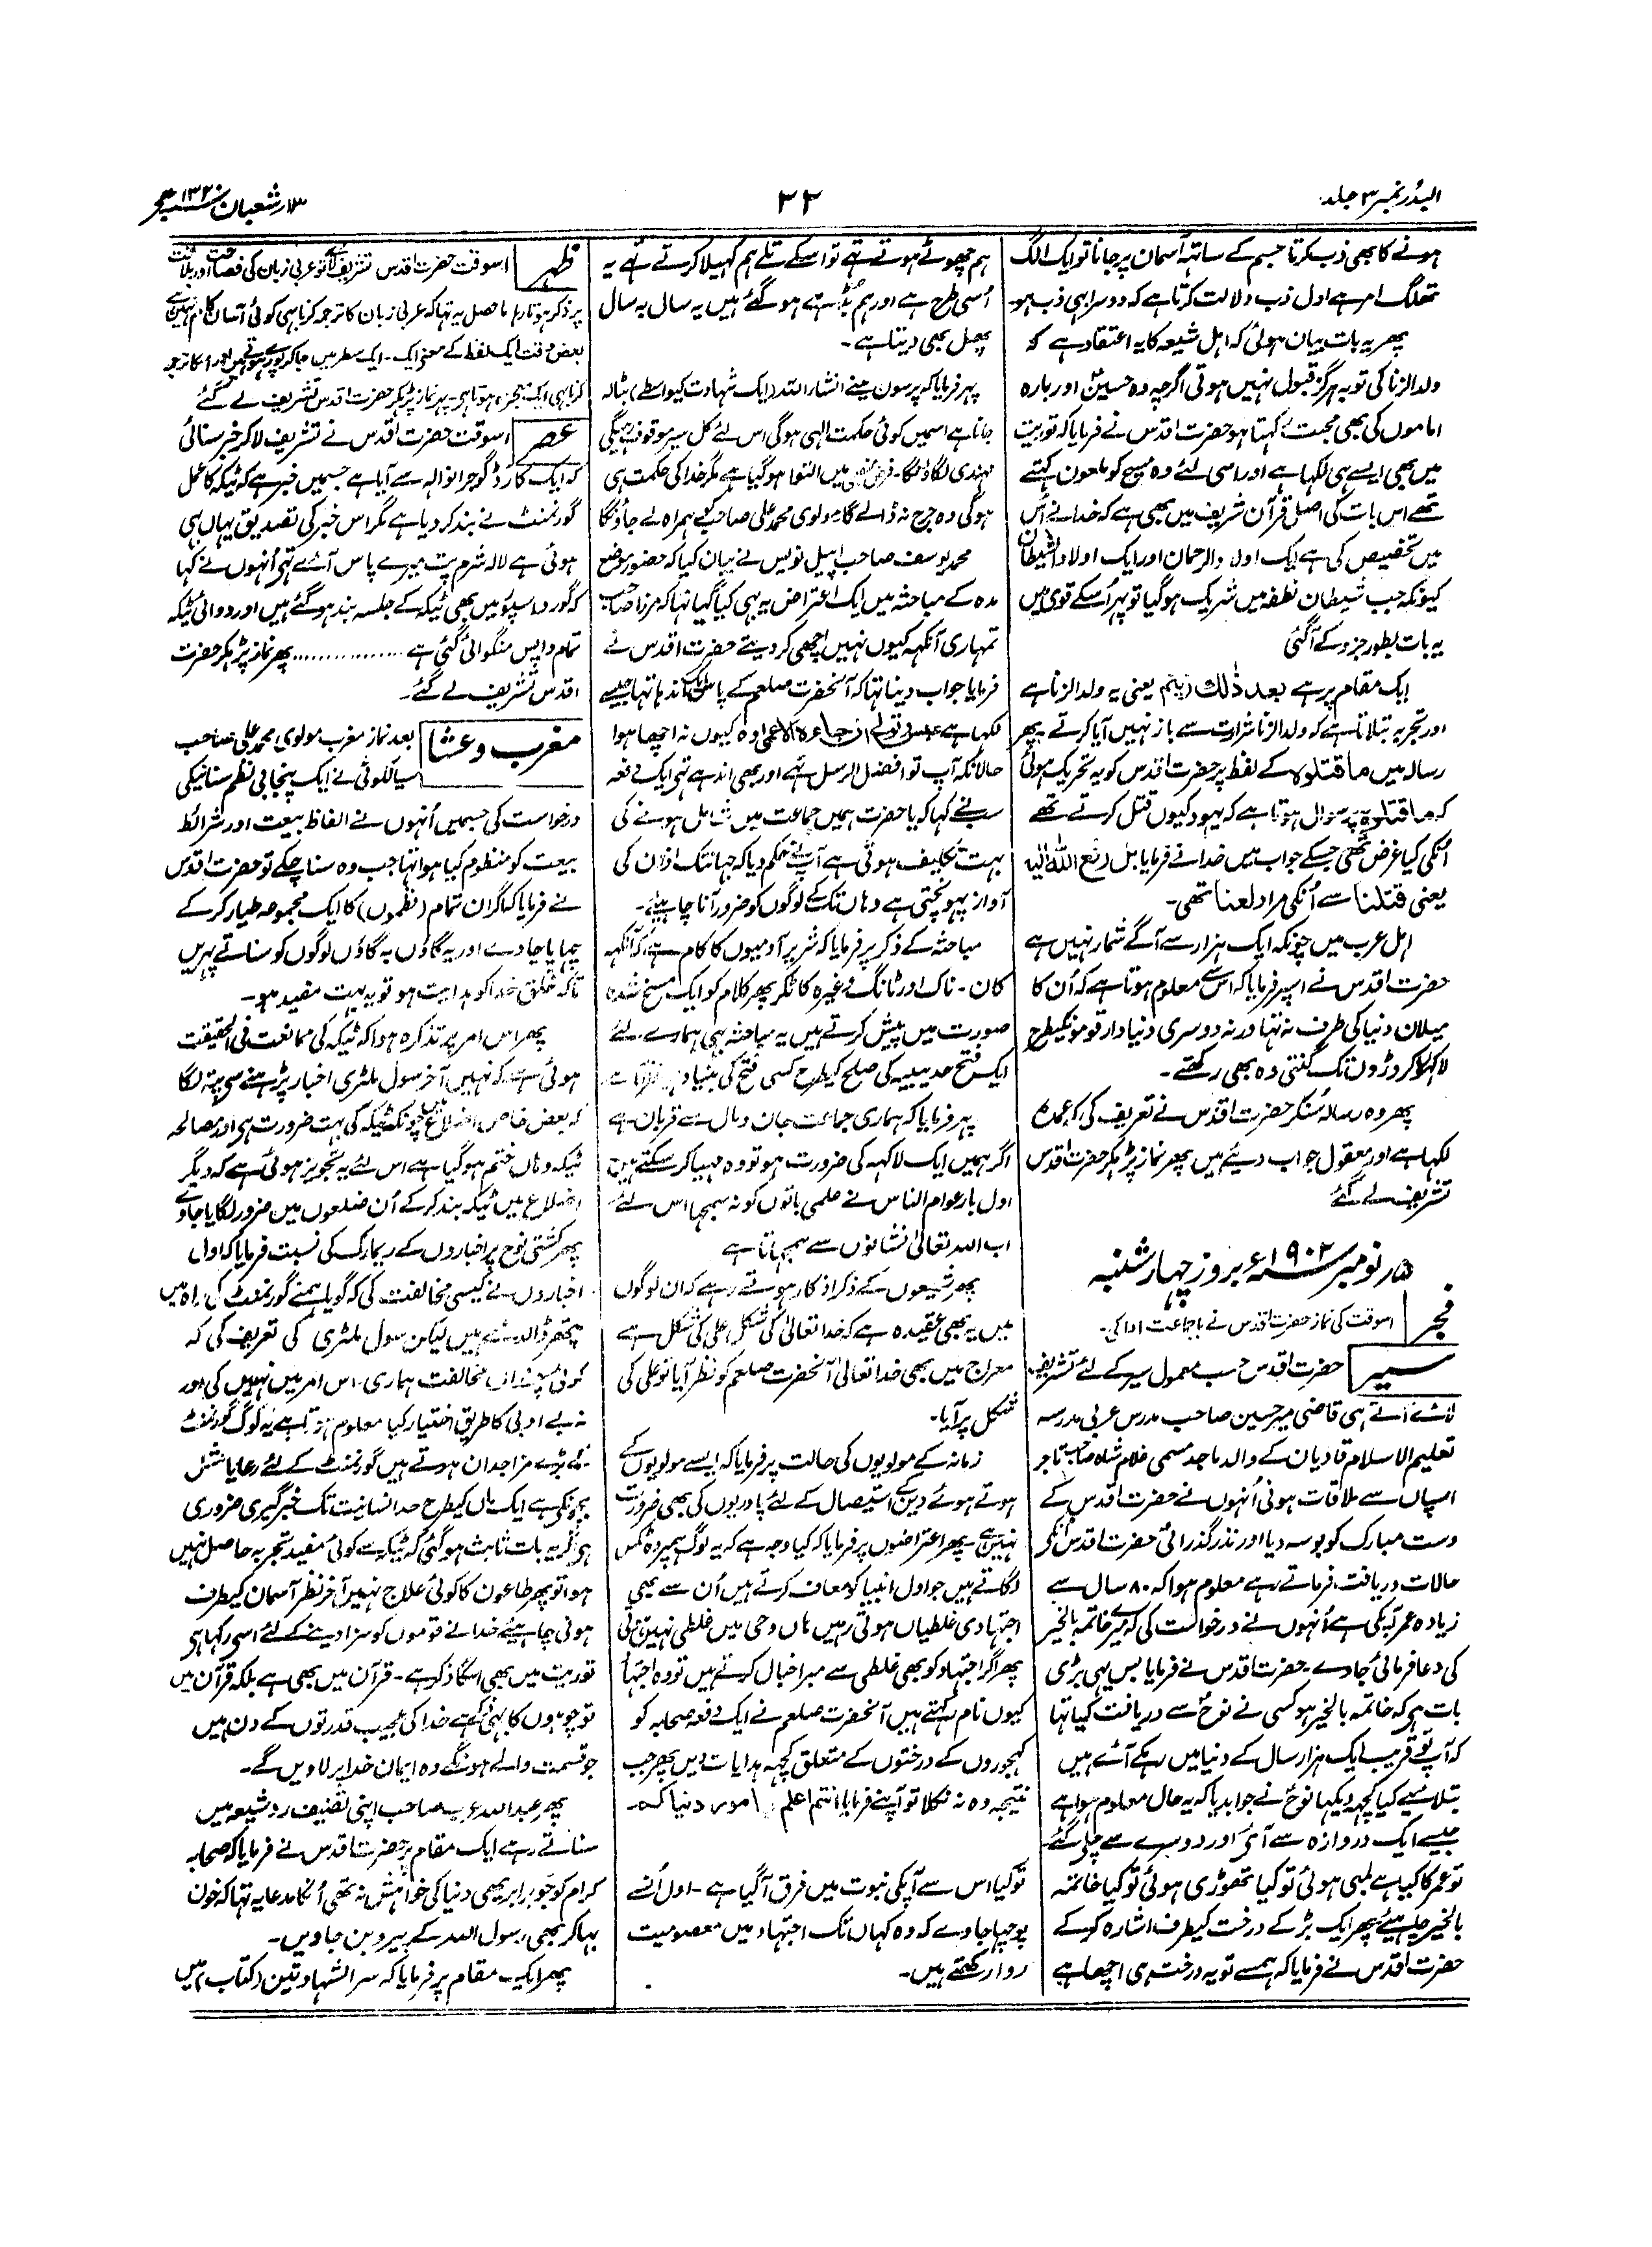 البدر نمبر ۳ جلد
۲۲
۳ار شعبان ۱۳۲۰ھ
ہونے کا بھی ذب کرتا جسم کے ساتھ آسمان پر جانا تو ایک الگ
تھلگ امر ہے اول ذب دلالت کرتا ہے کہ دوسرا ہی ذب ہو
پھر یہ بات بیان ہوئی کہ اہل شیعہ کا یہ اعتقاد ہے کہ
ولد الزنا کی توبہ ہرگز قبول نہیں ہوتی اگرچہ وہ حسینؓ اور بارہ
اماموں کی بھی محبت کہتا ہو حضرت اقدس نے فرمایا کہ توریت
میں بھی ایسے ہی لکھا ہے اور اسی لئے وہ مسیح کو ملعون کہتے
تھے اس بات کی اصل قرآن شریف میں بھی ہے کہ خدا نے اُس
میں تخصیص کی ہے ایک اولاد الرحمان اور ایک اولاد الشیطان
کیونکہ جب شیطان نطفہ میں شریک ہو گیا تو پہر اُسکے قویٰ میں
یہ بات بطور جزو کے آگئی
ایک مقام پر ہے بعد ذٰلک زنیم یعنی یہ ولد الزنا ہے
اور تجربہ بتلاتا ہے کہ ولد الزنا شرارت سے باز نہیں آیا کرتے پھر
رسالہ میں ما قتلوہ کے لفظ پر حضرت اقدس کو یہ تحریک ہوئی
کہ ما قتلوہ پر سوال ہوتا ہے کہ یہود کیوں قتل کرتے تھے
انکی کیا غرض تھی جسکے جواب میں خدا نے فرمایا بل رفع اللہ الیہ
یعنی قتلنا سے اُنکی مراد لعنا تھی۔
اہل عرب میں چونکہ ایک ہزار سے آگے شمار نہیں ہے
حضرت اقدس نے اسپر فرمایا کہ اس سے معلوم ہوتا ہے کہ اُن کا
میلان دنیا کی طرف نہ تھا ورنہ دوسری دنیا دار قوموں کیطرح
لاکھوں کروڑوں تک گنتی وہ بھی رکھتے۔
پھر وہ رسالہ سنکر حضرت اقدس نے تعریف کی کہ عمدہ
لکھا ہے اور معقول جواب دیئے ہیں پھر نماز پڑہکر حضرت اقدس
تشریف لے گئے
۵ار نومبر ۱۹۰۲ء بروز چہار شنبہ
فجر
اسوقت کی نماز حضرت اقدس نے باجماعت ادا کی۔
سیر
حضرت اقدس حسب معمول سیر کے لئے تشریف
لائے آتے ہی قاضی میر حسین صاحب مدرس عربی مدرسہ
تعلیم الاسلام قادیان کے والد ماجد مسمی غلام شاہ صاحب تاجر
اسپاں سے ملاقات ہوئی اُنہوں نے حضرت اقدس کے
دست مبارک کو بوسہ دیا اور نذر گذرانی حضرت اقدس انکر
حالات دریافت فرماتے رہے معلوم ہوا کہ ۸۰ سال سے
زیادہ عمر آپکی ہے اُنہوں نے درخواست کی کہ میرے خاتمہ بالخیر
کی دعا فرمائی جاوے۔ حضرت اقدس نے فرمایا بس یہی بڑی
بات ہے کہ خاتمہ بالخیر ہو کسی نے نوحؑ سے دریافت کیا تھا
کہ آپ تو قریب ایک ہزار سال کے دنیا میں رہکے آئے ہیں
بتلایئے کیا کچھ دیکھا نوحؑ نے جواب دیا کہ یہ حال معلوم ہوا ہے
جیسے ایک دروازہ سے آئے اور دوسرے سے چلے گئے
تو عمر کا کیا ہے لمبی ہوئی تو کیا تھوڑی ہوئی تو کیا خاتمہ
بالخیر چاہیئے پھر ایک بڑ کے درخت کیطرف اشارہ کر کے
حضرت اقدس نے فرمایا کہ ہمسے تو یہ درخت ہی اچھا ہے
ہم چھوٹے ہوتے تھے تو اسکے تلے ہم کھیلا کرتے تھے یہ
اُسی طرح ہے اور ہم بڈھے ہو گئے ہیں یہ سال بہ سال
پھل بھی دیتا ہے۔
پہر فرمایا کہ پرسوں مینے انشاء اللہ (ایک شہادت کیواسطے) بٹالہ
جانا ہے اسمیں کوئی حکمت الہی ہوگی اس لئے کل سیر موقوف رہیگی
مہندی لگاؤنگا۔ میں التوا ہو گیا ہے مگر خدا کی حکمت ہی
ہوگی وہ حرج نہ ڈالے گا مولوی محمد علی صاحب کو ہمراہ لے جاؤنگا
محمد یوسف صاحب اپیل نویس نے بیان کیا کہ حضور موضع
مدہ کے مباحثہ میں ایک اعتراض یہ بھی کیا گیا تھا کہ مرزا صاحب
تمہاری آنکھہ کیوں نہیں اچھی کر دیتے حضرت اقدس نے
فرمایا جواب دینا تھا کہ آنحضرت صلعم کے پاس ایک اندھا تھا جیسے
لکھا ہے عبس و تولی ان جاءہ الاعمی وہ کیوں نہ اچھا ہوا
حالانکہ آپ تو افضل الرسل تھے اور بھی اندھے تھے ایک دفعہ
سبنے کہا کہ یا حضرت ہمیں جماعت میں شامل ہونے کی
بہت تکلیف ہوتی ہے آپ نے حکم دیا کہ جہانتک اذان کی
آواز پہونچتی ہے وہاں تک کے لوگوں کو ضرور آنا چاہیئے۔
مباحثہ کے ذکر پر فرمایا کہ شریر آدمیوں کا کام ہے کہ آنکھہ
کان۔ ناک اور ٹانگ وغیرہ کاٹکر پھر کلام کو ایک مسخ شدہ
صورت میں پیش کرتے ہیں یہ مباحثہ بھی ہمارے لئے
ایک فتح حدیبیہ کی صلح کیطرح کسی فتح کی بنیاد
پہر فرمایا کہ ہماری جماعت جان و مال سے قربان ہے
اگر ہمیں ایک لاکھہ کی ضرورت ہو تو وہ مہیا کر سکتے ہیں
اول بار عوام الناس نے علمی باتوں کو نہ سمجھا اس لئے
اب اللہ تعالیٰ نشانوں سے سمجھاتا ہے
پھر شیعوں کے ذکر اذکار ہوتے رہے کہ ان لوگوں
میں یہ بھی عقیدہ ہے کہ خدا تعالیٰ کی شکل علی کی شکل ہے
معراج میں بھی خدا تعالیٰ آنحضرت صلعم کو نظر آیا تو علی کی
شکل پر آیا۔
زمانہ کے مولویوں کی حالت پر فرمایا کہ ایسے مولویوں کے
ہوتے ہوئے دین کے استیصال کے لئے پادریوں کی بھی ضرورت
نہیں ہے۔ پھر اعتراضوں پر فرمایا کہ کیا وجہ ہے کہ یہ لوگ ہمپر وہ ٹمس
لگاتے ہیں جو اول انبیا کو معاف کرتے ہیں اُن سے بھی
اجتہادی غلطیاں ہوتی رہیں ہاں وحی میں غلطی نہیں ہوتی
پھر اگر اجتہاد کو بھی غلطی سے مبرا خیال کرتے ہیں تو وہ اجتہاد
کیوں نام رکہتے ہیں آنحضرت صلعم نے ایک دفعہ صحابہ کو
کھجوروں کے درختوں کے متعلق کچھہ ہدایات دیں پھر جب
نتیجہ وہ نہ نکلا تو آپنے فرمایا انتم اعلم امور دنیا کم۔
تو کیا اس سے آپکی نبوت میں فرق آگیا ہے۔ اول اُنسے
پوچھا جاوے کہ وہ کہاں تک اجتہاد میں معصومیت
روا رکھتے ہیں۔
ظہر
اسوقت حضرت اقدس تشریف لائے تو عربی زبان کی فصاحت اور بلاغت
پر ذکر ہوتا رہا ماحصل یہ تھا کہ عربی زبان کا ترجمہ کرنا ہی کوئی آسان کام نہیں ہے
بعض وقت ایک لفظ کے معنی ایک۔ ایک سطر میں جا کر پورے ہوتے ہیں اور اُسکا ترجمہ
کرنا ہی ایک معجزہ ہوتا ہے۔ پہر نماز پڑہکر حضرت اقدس تشریف لے گئے
عصر
اسوقت حضرت اقدس نے تشریف لاکر خبر سنائی
کہ ایک کارڈ گوجرانوالہ سے آیا ہے جسمیں خبر ہے کہ ٹیکہ کا عمل
گورنمنٹ نے بند کر دیا ہے مگر اس خبر کی تصدیق یہاں بھی
ہوئی ہے لالہ شرم پت میرے پاس آئے تھے اُنہوں نے کہا
کہ گورداسپور میں بھی ٹیکہ کے جلسہ بند ہو گئے ہیں اور دوائی ٹیکہ
تمام واپس منگوائی گئی ہے .............. پھر نماز پڑہکر حضرت
اقدس تشریف لے گئے۔
مغرب و عشا
بعد نماز مغرب مولوی محمد علی صاحب
سیالکوٹی نے ایک پنجابی نظم سنانیکی
درخواست کی جسمیں اُنہوں نے الفاظ بیعت اور شرائط
بیعت کو منظوم کیا ہوا تھا جب وہ سنا چکے تو حضرت اقدس
نے فرمایا کہ اگر ان تمام (نظموں) کا ایک مجموعہ طیار کر کے
چھاپا جاوے اور یہ گاؤں بہ گاؤں لوگوں کو سناتے پہریں
تاکہ خلق خدا کو ہدایت ہو تو یہ بہت مفید ہو۔
پھر اس امر پر تذکرہ ہوا کہ ٹیکہ کی ممانعت فی الحقیقت
ہوئی ہے کہ نہیں آخر سول ملٹری اخبار پڑہنے سے پتہ لگا
کہ بعض خاص اضلاع میں چونکہ ٹیکہ کی بہت ضرورت ہے اور مصالحہ
ٹیکہ وہاں ختم ہو گیا ہے اس لئے یہ تجویز ہوئی ہے کہ دیگر
اضلاع میں ٹیکہ بند کر کے اُن ضلعوں میں ضرور لگایا جاوے
پھر کشتی نوح پر اخباروں کے ریمارک کی نسبت فرمایا کہ اول
اخباروں نے کیسی مخالفت کی کہ گویا ہمنے گورنمنٹ کی راہ میں
پتھر ڈالدئے ہیں لیکن سول ملٹری کی تعریف کی کہ
کوئی چنداں مخالفت ہماری اس امر میں نہیں کی اور
نہ بے ادبی کا طریق اختیار کیا معلوم ہوتا ہے یہ لوگ گورنمنٹ
کے بڑے مزاجدان ہوتے ہیں گورنمنٹ کے لئے رعایا مثل
بچونکی ہے ایک ماں کیطرح حد انسانیت تک خبر گیری ضروری
ہے اگر یہ بات ثابت ہو گئی کہ ٹیکہ سے کوئی مفید تجربہ حاصل نہیں
ہوا تو پھر طاعون کا کوئی علاج نہیں آخر نظر آسمان کیطرف
ہونی چاہیئے خدا نے قوموں کو سزا دینے کے لئے اسے رکھا ہے
توریت میں بھی اسکا ذکر ہے۔ قرآن میں بھی ہے بلکہ قرآن میں
تو چوہوں کا بھی ذکر ہے خدا کی عجیب قدرتوں کے دن ہیں
جو قسمت والے ہونگے وہ ایمان خدا پر لاویں گے۔
پھر عبد اللہ عرب صاحب اپنی تصنیف رد شیعہ میں
سناتے رہے ایک مقام پر حضرت اقدس نے فرمایا کہ صحابہ
کرام کو جَو برابر بھی دنیا کی خواہش نہ تھی اُنکا مدعا یہ تھا کہ خون
بہا کر بھی رسول اللہ کے پیرو بن جاویں۔
پھر ایک مقام پر فرمایا کہ سر الشہادتین (کتاب) میں